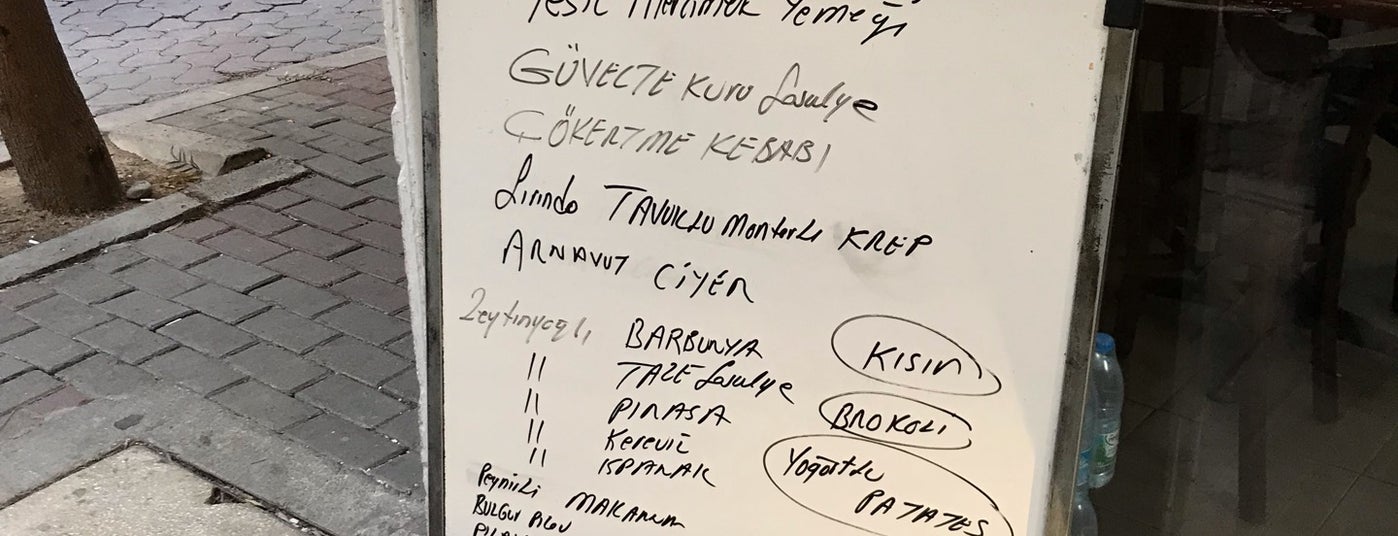 Yeşil Mercimek Yemeği
GÜVEÇTE KURU fasulye
ÇÖKERTME KEBABI
fırında TAVUKLU Mantarlı KREP
ARNAVUT CİYER
Zeytinyağlı BARBUNYA
" TAZE fasulye
" PIRASA
" Kereviz
" ISPANAK
KISIR
BROKOLİ
Yoğurtlu
PATATES
Peynirli MAKARNA
BULGUR PİLAV